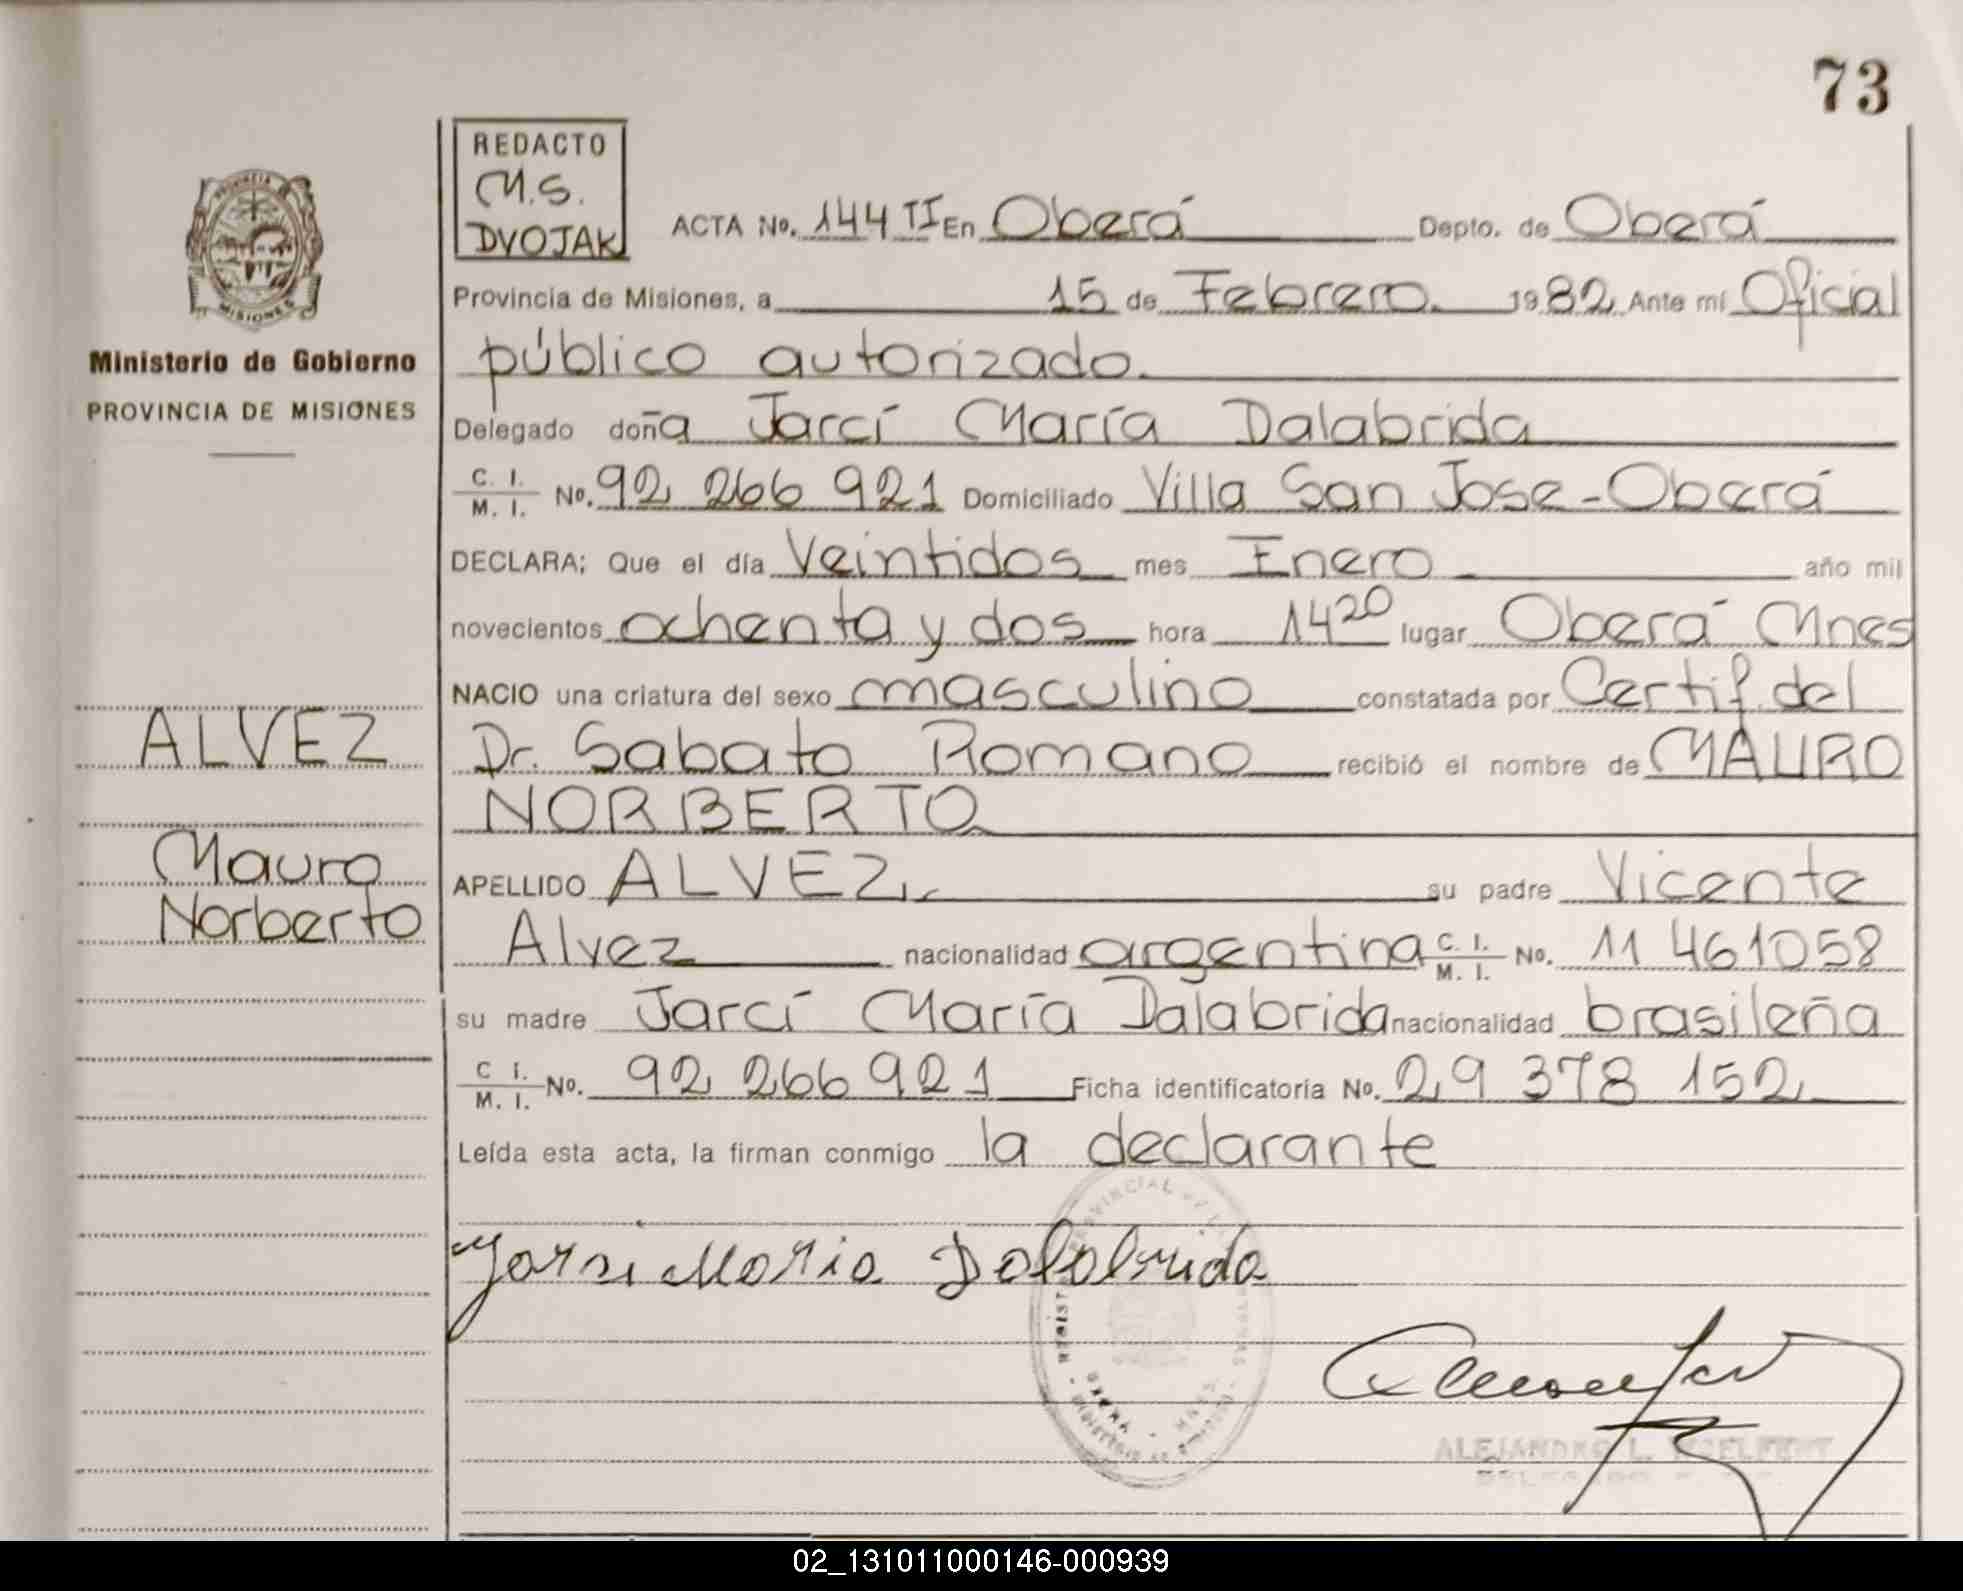 73
REDACTO
M.S.
DVOJAK
ACTA No. 144 II En Oberá Depto. de Oberá
Provincia de Misiones, a 15 de Febrero. 1982 Ante mí Oficial
público autorizado.
Delegado doña Jarcí María Dalabrida
C. I.
M. I. No. 92 266 921 Domiciliado Villa San Jose-Oberá
DECLARA; Que el día Veintidos mes Enero año mil
novecientos ochenta y dos hora 14 20 lugar Oberá Mnes
NACIO una criatura del sexo masculino constatada por Certif. del
Dr. Sabato Romano recibió el nombre de MAURO
NORBERTO
APELLIDO ALVEZ su padre Vicente
Alvez nacionalidad argentina C. I. M. I. No. 11 461058
su madre Jarcí María Dalabrida nacionalidad brasileña
C I.
M. I. No. 92 266 921 Ficha identificatoria No. 29 378 152
Leída esta acta, la firman conmigo la declarante
Jarsi Maria Dalabrida
ALEJANDRO L.
PROVINCIA
MISIONES
Ministerio de Gobierno
PROVINCIA DE MISIONES
ALVEZ
Mauro
Norberto
02_131011000146-000939